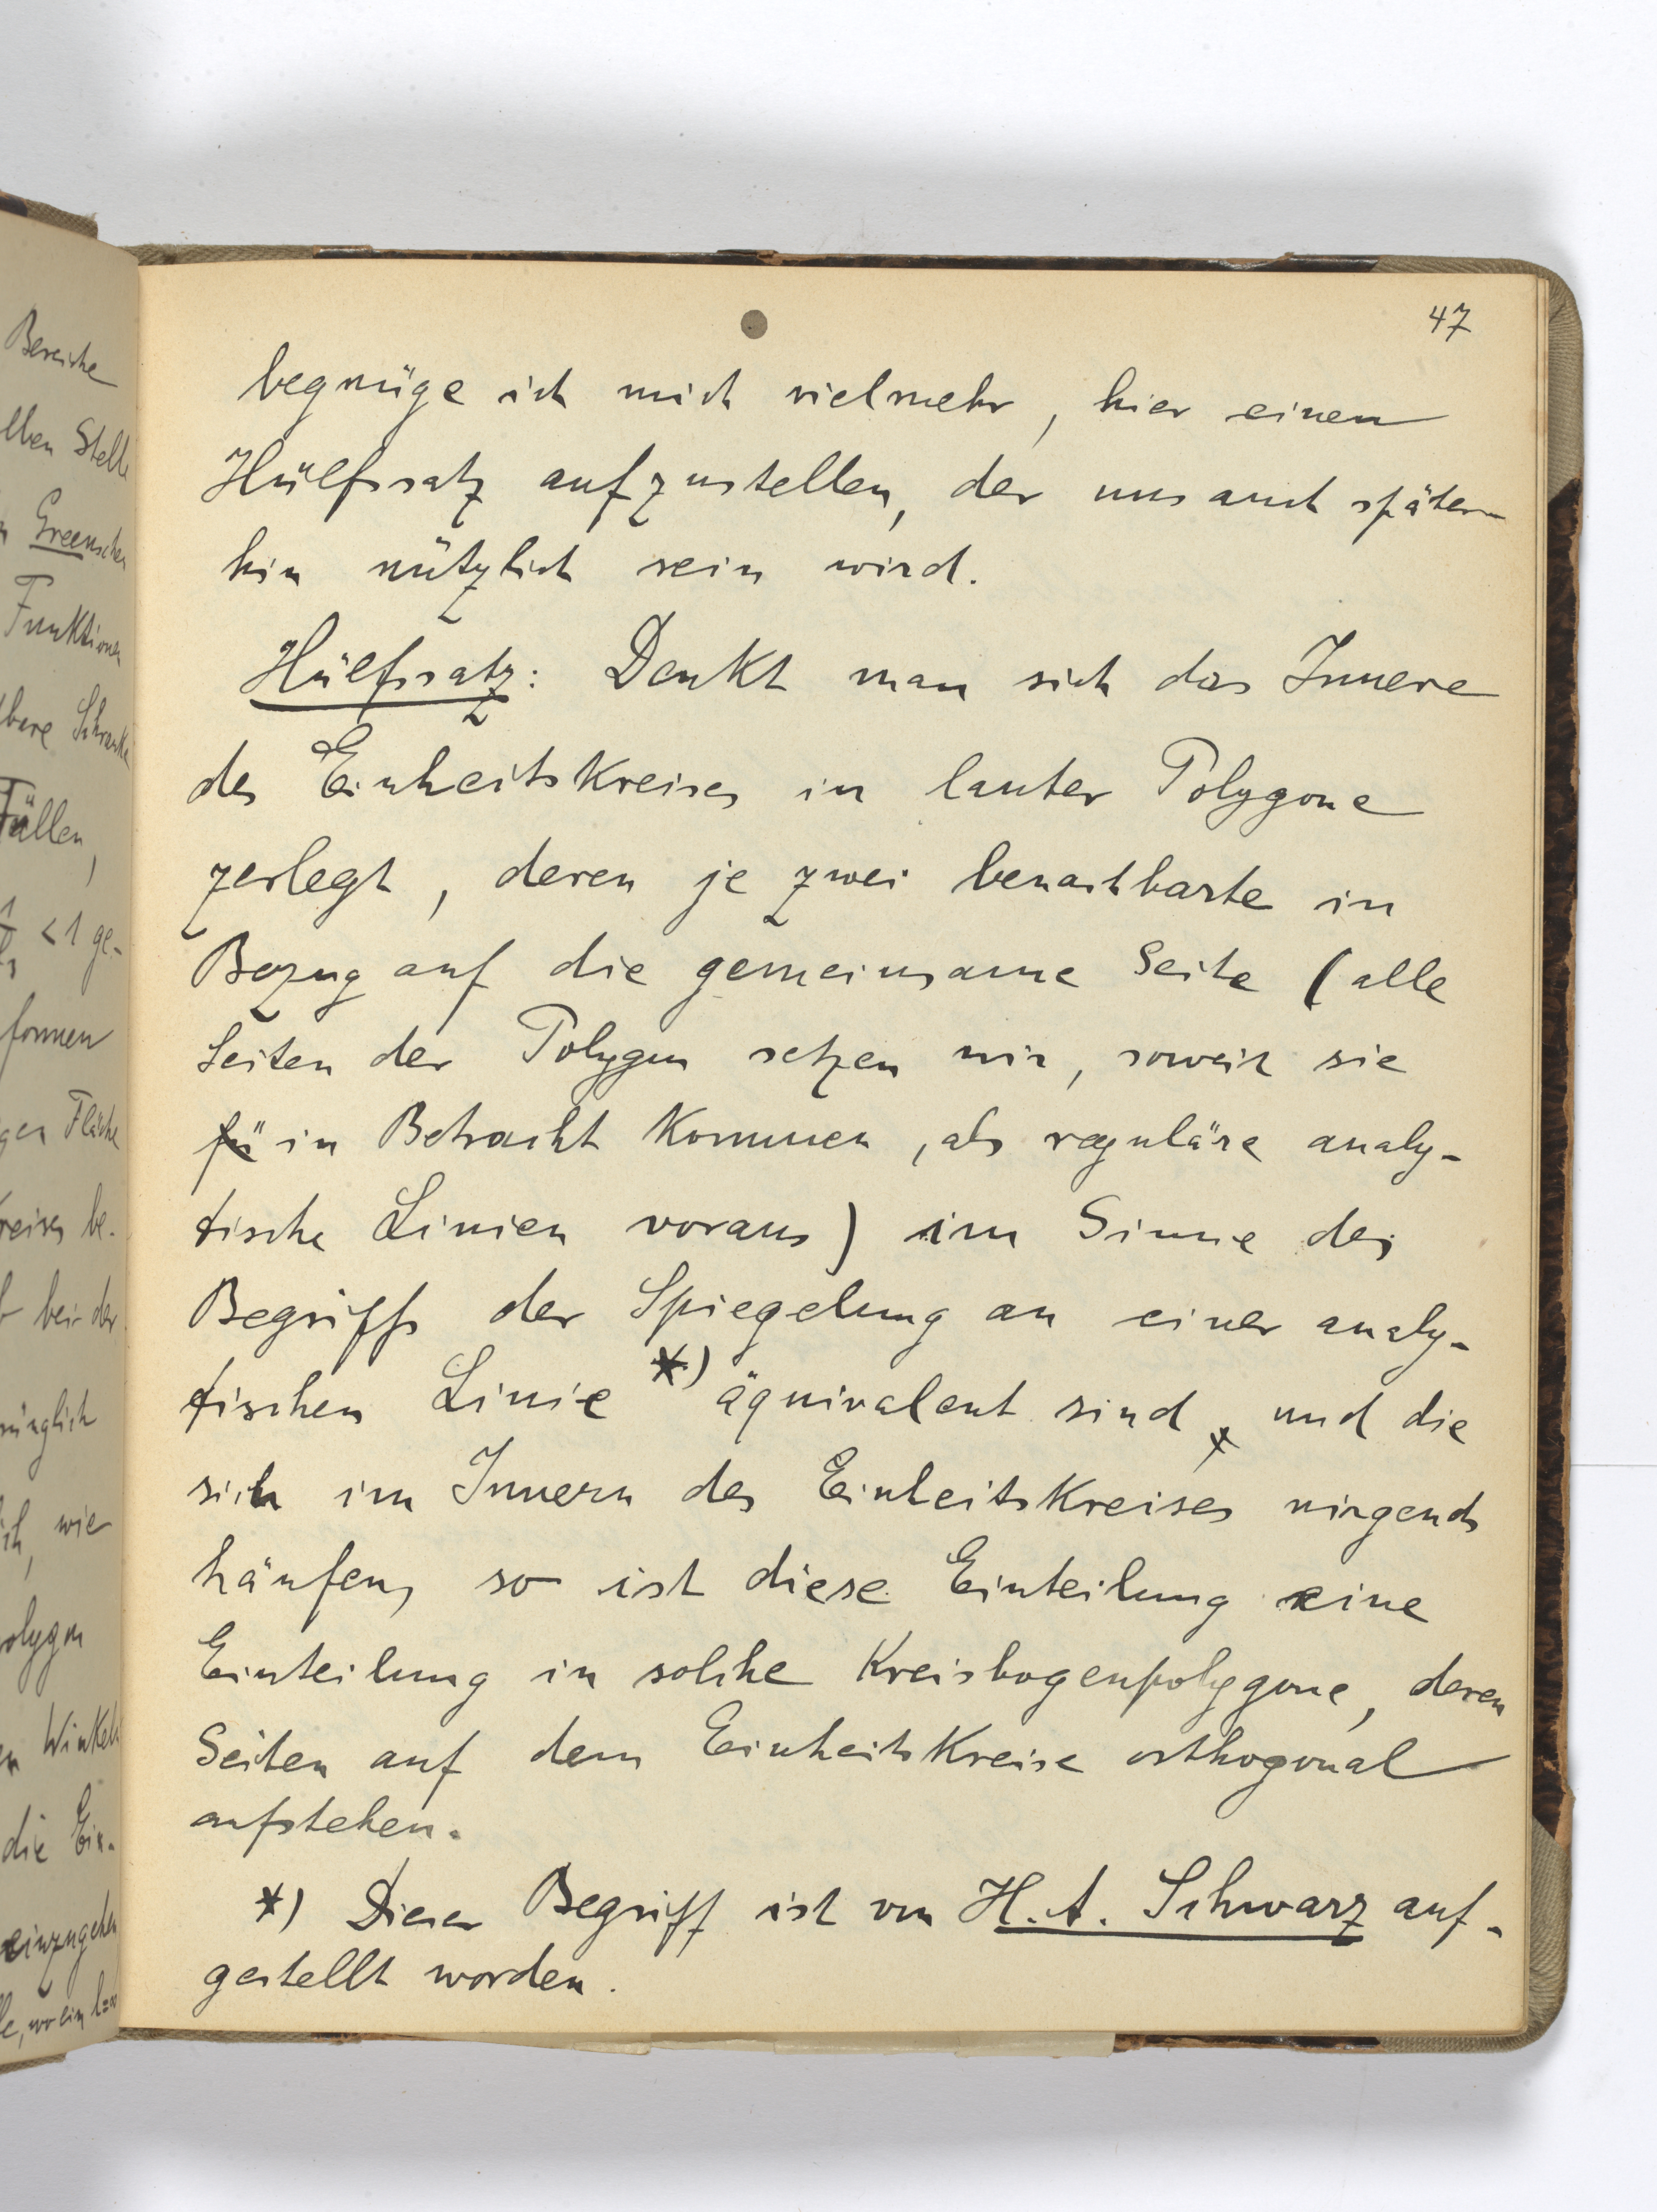 Bereiche
lben Stelle
n Greenschen
Funktionen
bare Schranke
Fällen,
< 1 ge-
formen
ger Fläche
Kreises be-
bei der
wie
polygon
en Winkeln
die Ein-
einzugehen
47
begnüge ich mich vielmehr, hier einen
Hülfssatz aufzustellen, der uns auch später-
hin nützlich sein wird.
Hülfssatz: Denkt man sich das Innere
des Einheitskreises in lauter Polygone
zerlegt, deren je zwei benachbarte in
Bezug auf die gemeinsame Seite (alle
Seiten der Polygon setzen wir, soweit sie
fü in Betracht kommen, als reguläre analy-
tische Linien voraus) im Sinne des
Begriffs der Spiegelung an einer analy-
tischen Linie *) äquivalent sind, und die
sich im Innern des Einheitskreises nirgends
häufen, so ist diese Einteilung eine
Einteilung in solche Kreisbogenpolygone, deren
Seiten auf dem Einheitskreise orthogonal
aufstehen.
*) Dieser Begriff ist von H. A. Schwarz auf-
gestellt worden.